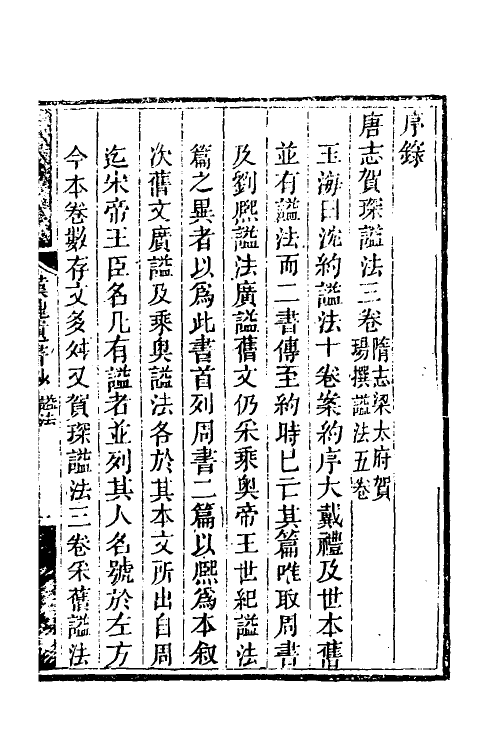 序錄
唐志賀琛諡法三卷隋志梁太府賀
瑒撰諡法五卷
玉海曰沈約諡法十卷案約序大戴禮及世本舊
並有諡法而二書傳至約時已亡其篇唯取周書
及劉熙諡法廣諡舊文仍采乘奧帝王世紀諡法
篇之異者以爲此書首列周書二篇以熙爲本叙
次舊文廣諡及乘奧諡法各於其本文所出自周
迄宋帝王臣名凡有諡者並列其人名號於左方
今本卷數存文多舛又賀琛諡法三卷采舊諡法
漢魏遺書鈔 諡法
一